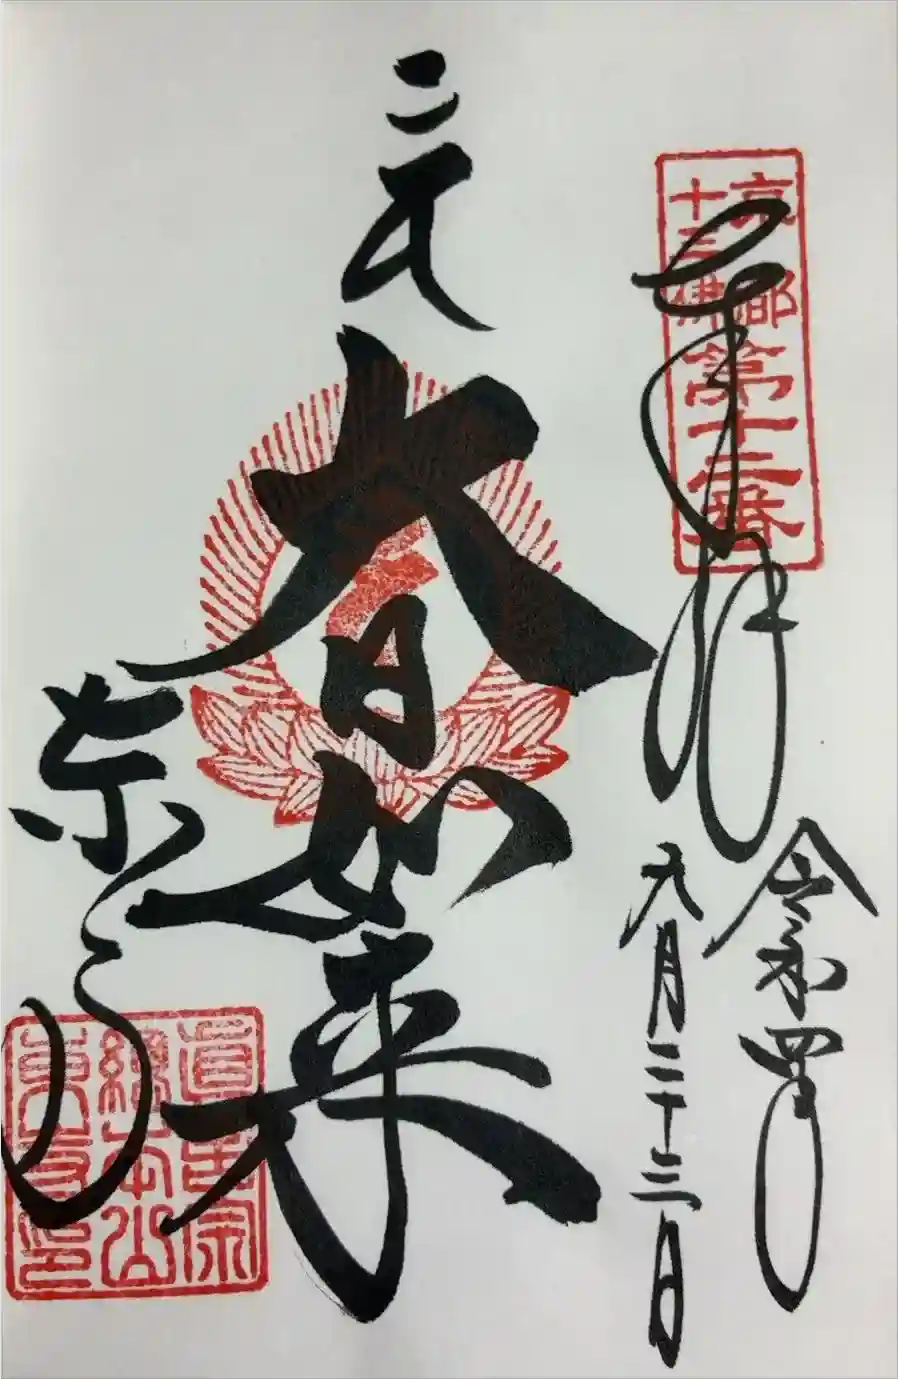 京都
十三佛
第十二番
奉拝
令和四年
九月二十三日
大日如来
東寺
眞言宗
總本山
東寺印